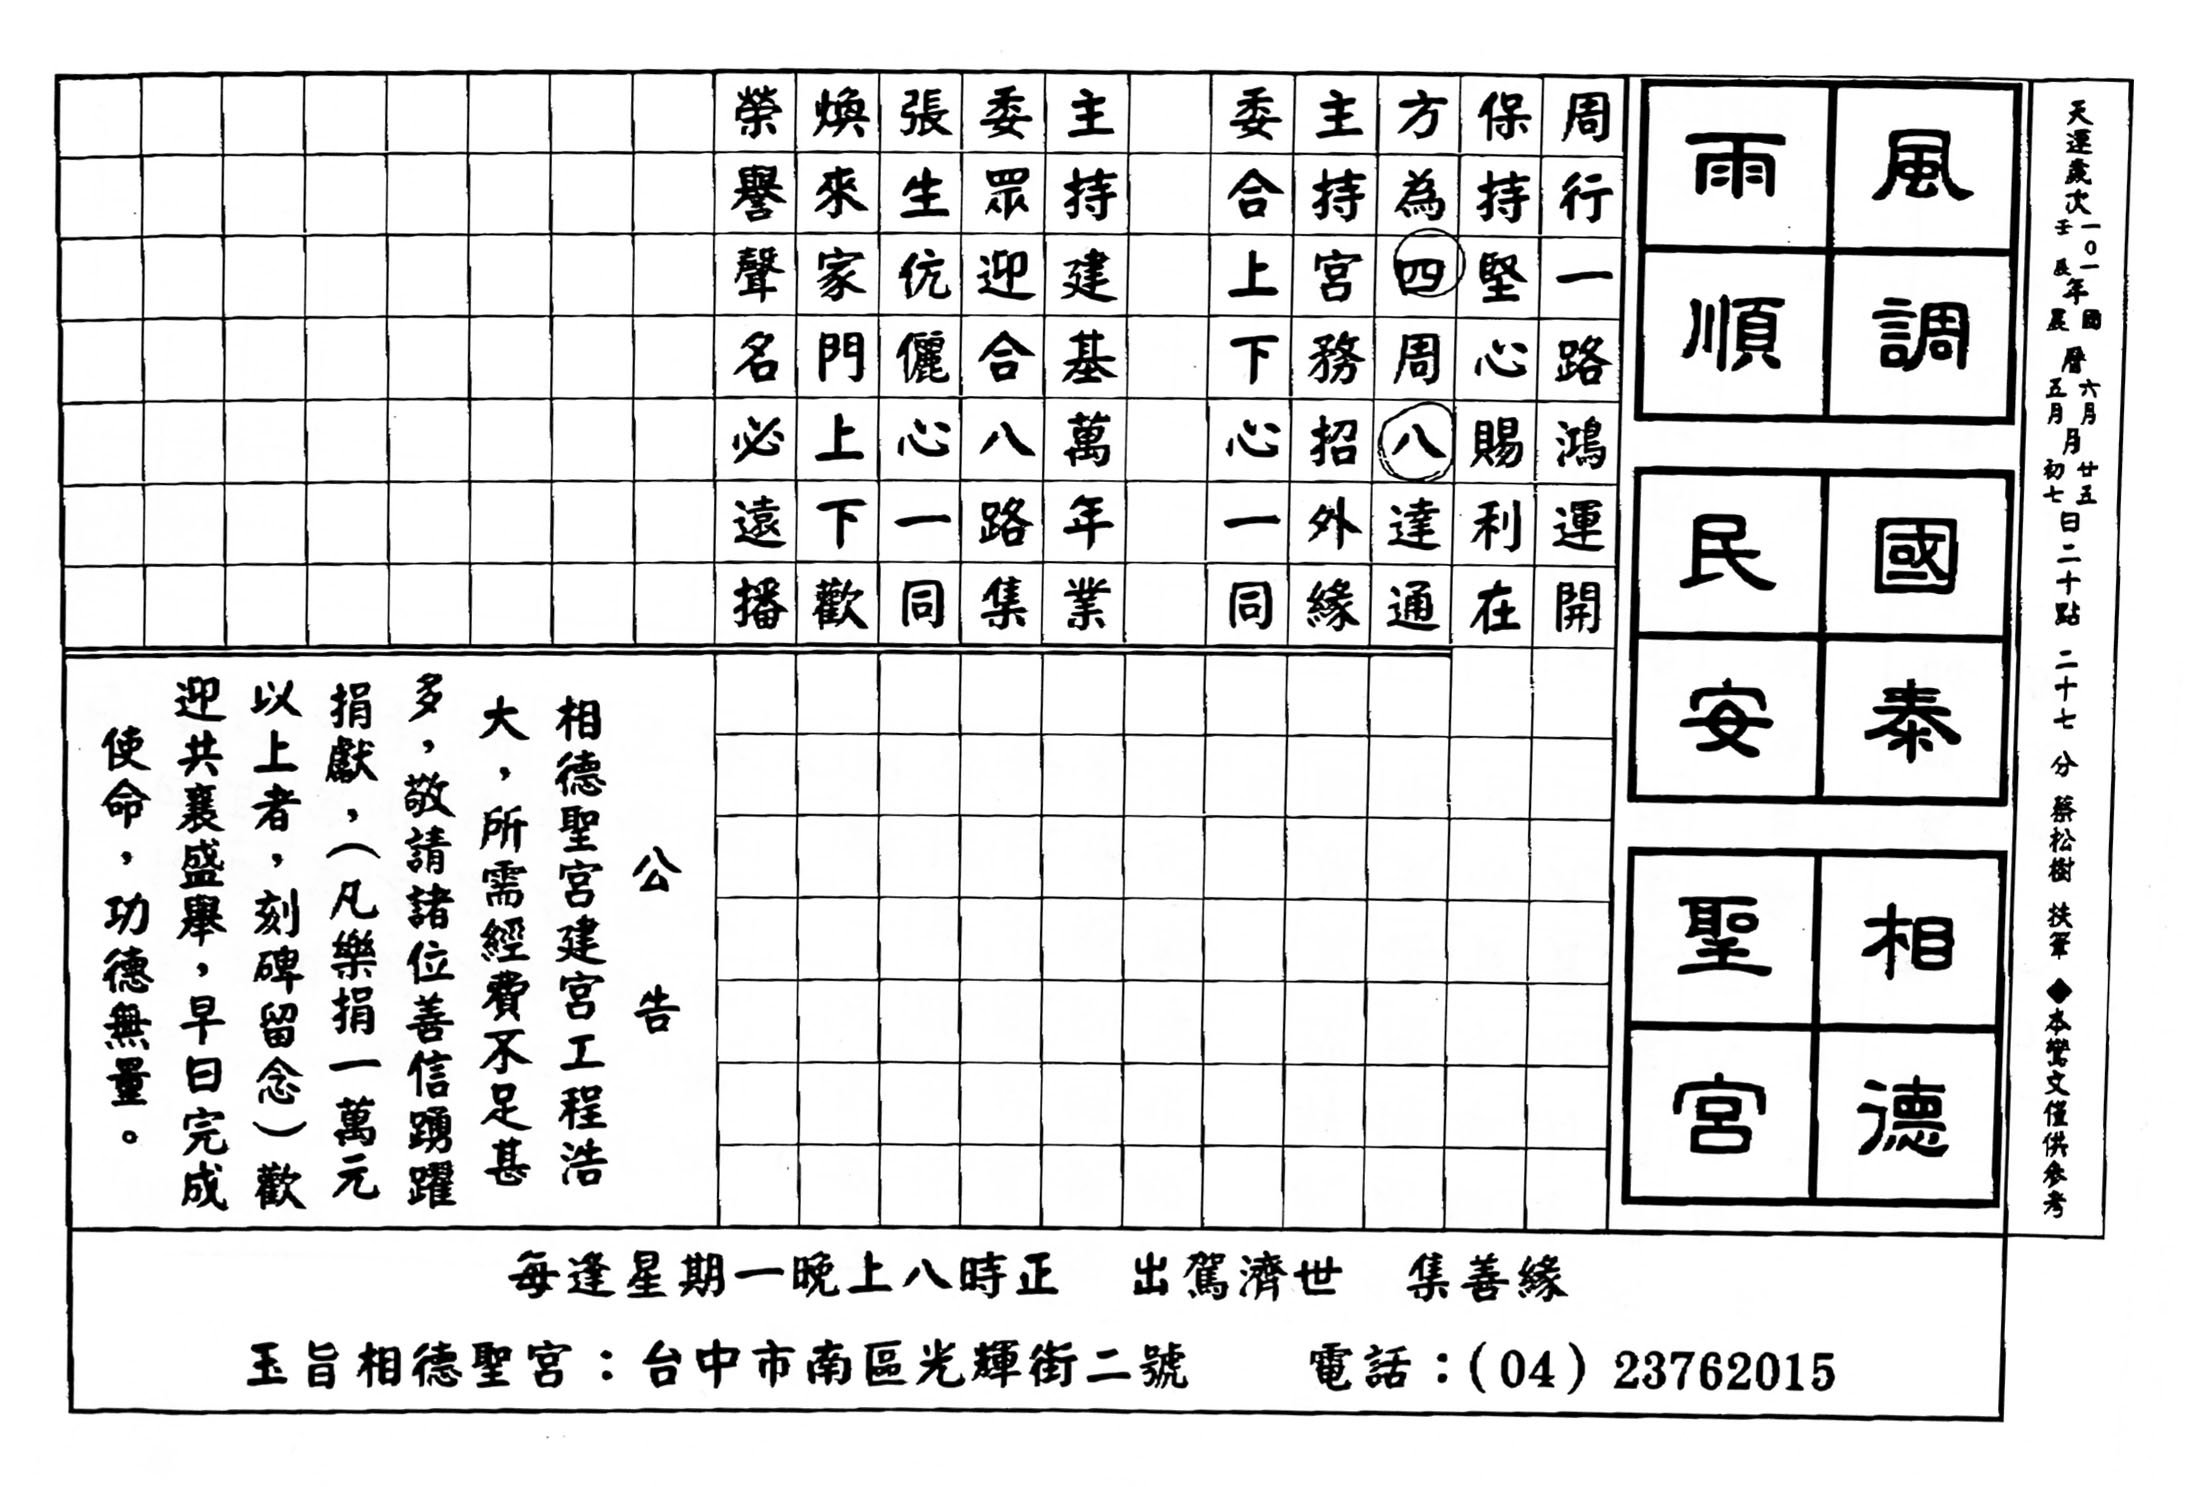 天運歲次一〇一壬辰年國農曆六月五月月廿五初七日二十點二十七分 蔡松樹 扶筆 ◆本鸞文僅供參考
風調
雨順
國泰
民安
相德
聖宮
周行一路鴻運開
保持堅心賜利在
方為四周八達通
主持宮務招外緣
委合上下心一同
主持建基萬年業
委眾迎合八路集
張生伉儷心一同
煥來家門上下歡
榮譽聲名必遠播
公告
相德聖宮建宮工程浩
大，所需經費不足甚
多，敬請諸位善信踴躍
捐獻，（凡樂捐一萬元
以上者，刻碑留念）歡
迎共襄盛舉，早日完成
使命，功德無量。
每逢星期一晚上八時正 出駕濟世 集善緣
玉旨相德聖宮：台中市南區光輝街二號 電話：(04) 23762015